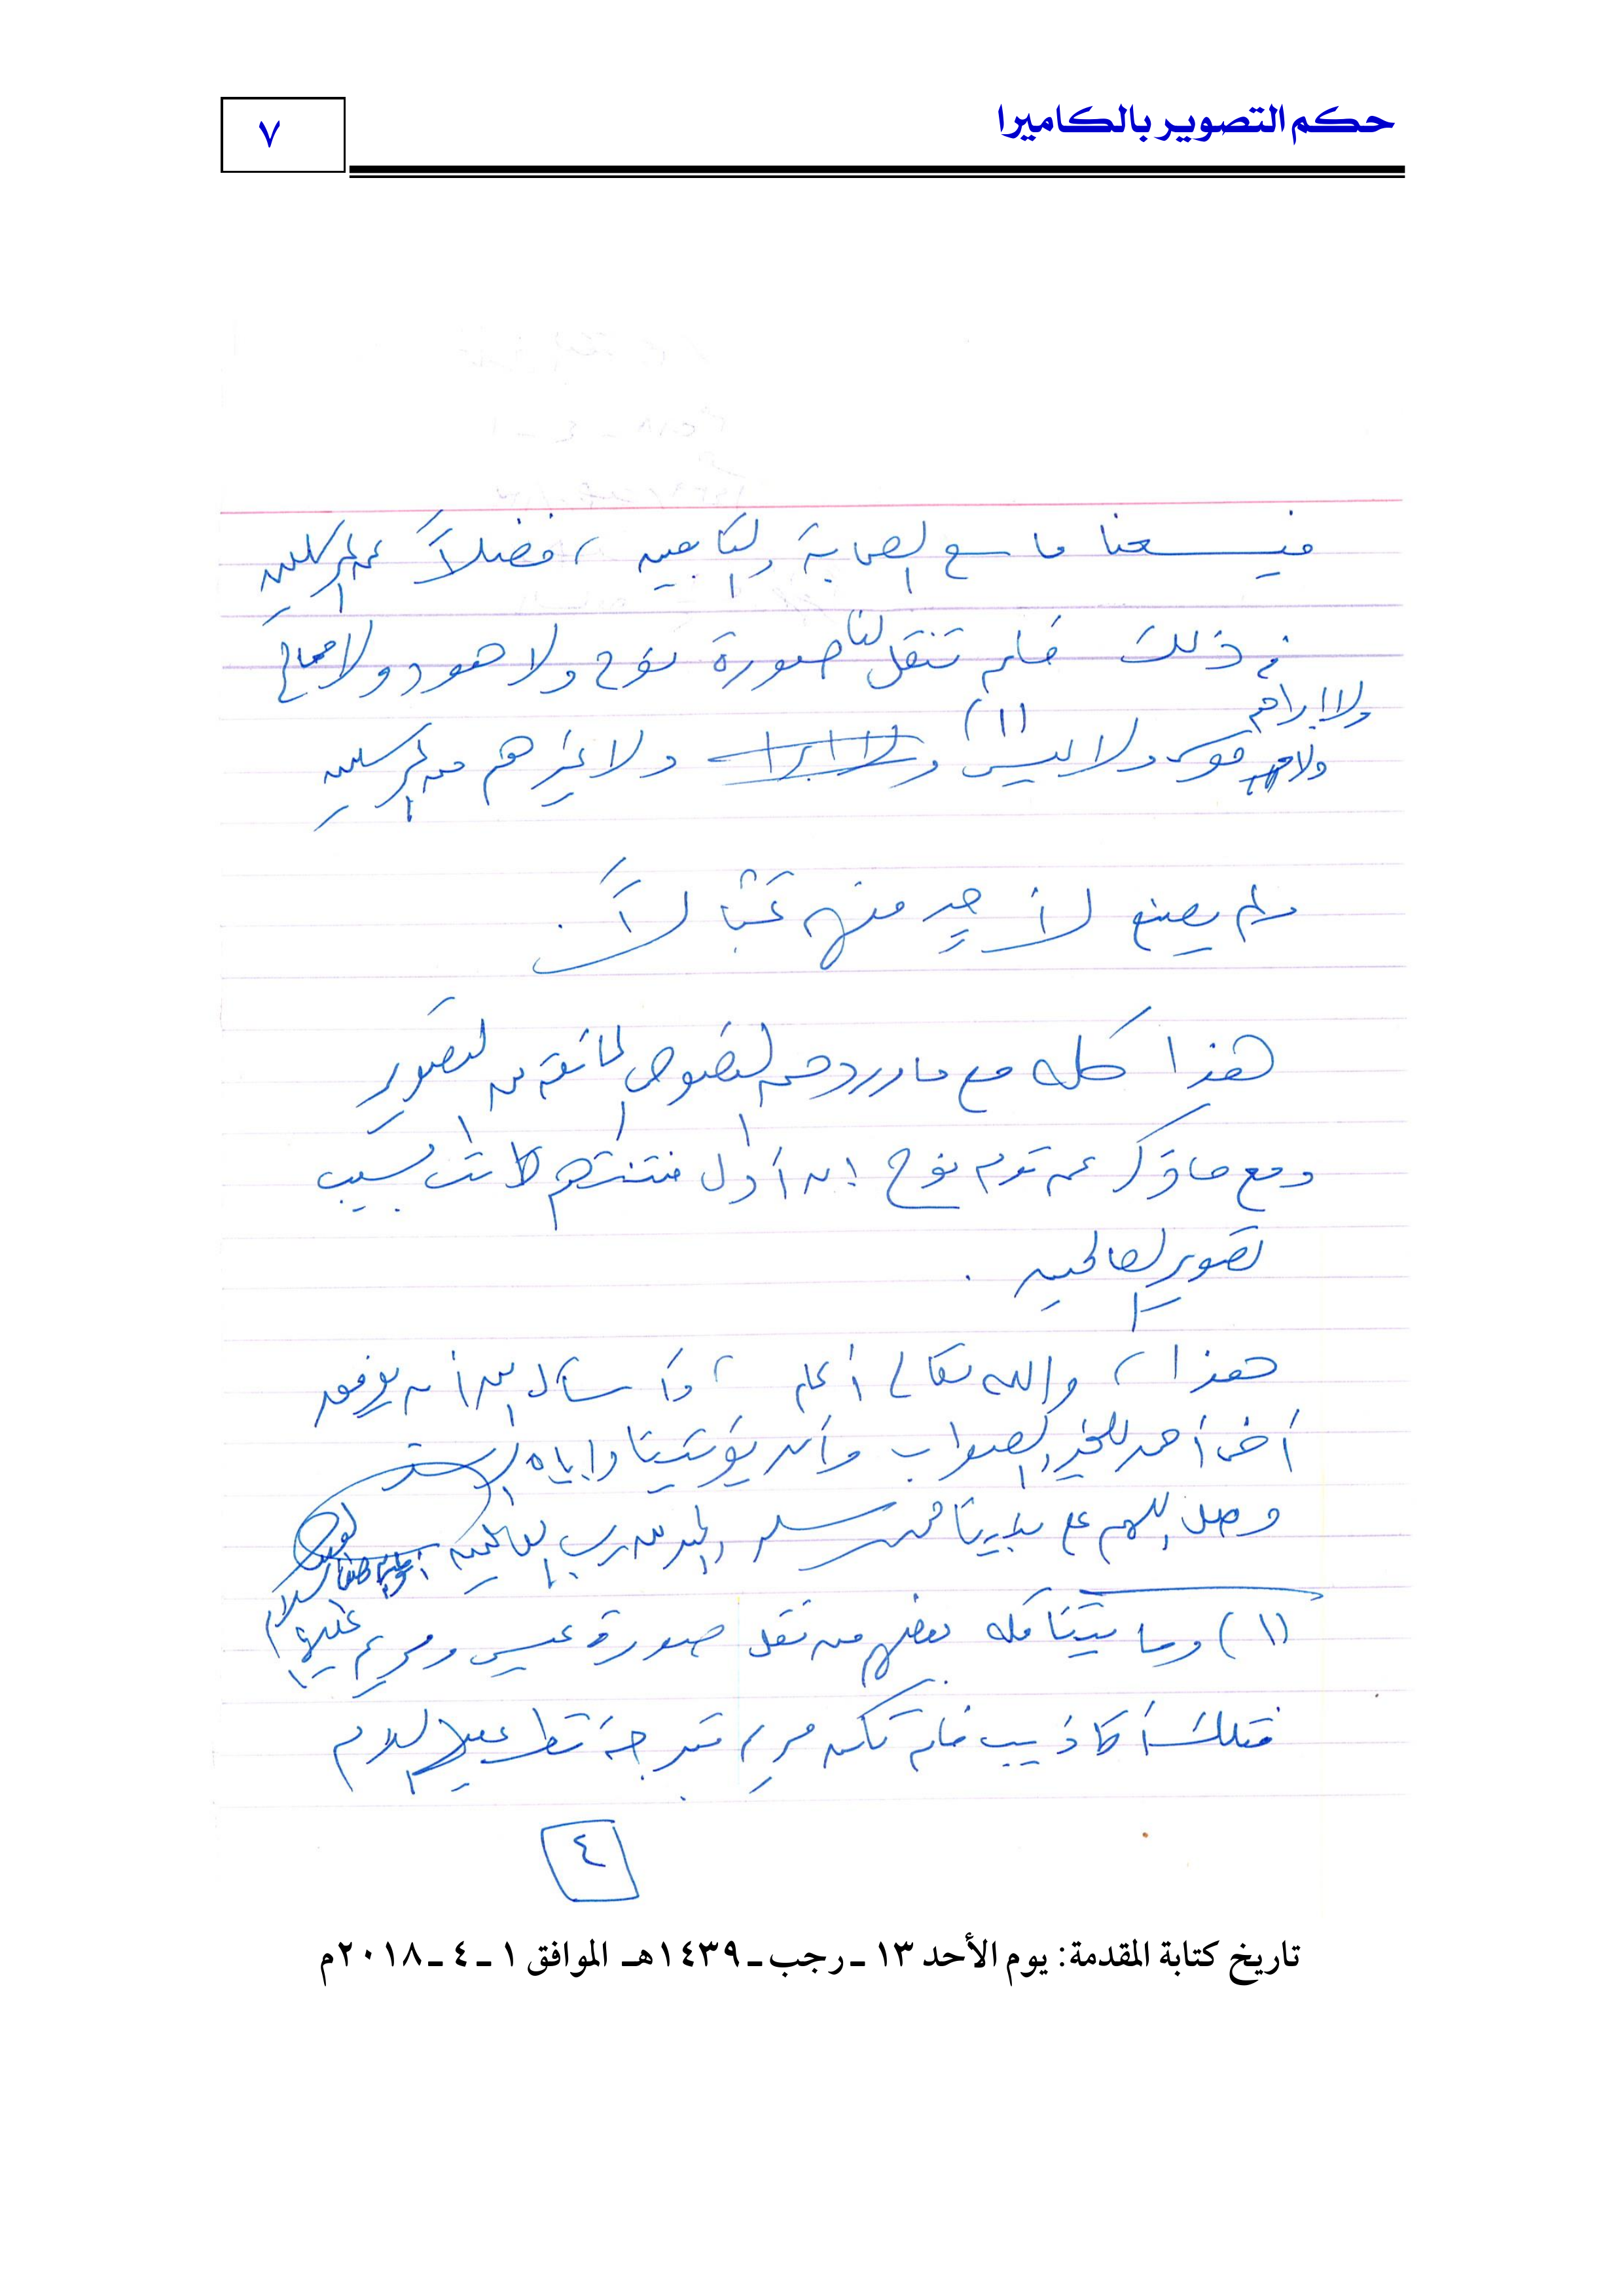 حكم التصوير بالكاميرا
٧
فيسعنا ما وسع الصحابة والتابعين ، فضلاً عن المرسلين
في ذلك فلم تنقل لنا صورة نوح ولا هود ولا صالح
ولا إبراهيم
ولا موسى ولا عيسى (١) ولا غيرهم من المرسلين
ولم يصنع لأحد منهم تمثالاً .
هذا كله مع ما ورد من النصوص المانعة من التصوير
ومع ما ذكر عن قوم نوح أن أول فتنتهم كانت بسبب
تصوير الصالحين .
هذا ، والله تعالى أعلم ، وأسأل الله أن يوفق
أخي أحمد للخير والصواب وأن يؤتينا وإياه
وصل اللهم على نبينا محمد وسلم والحمد لله رب العالمين
(١) وما يتناقله بعضهم من نقل صورة عيسى ومريم عليهما السلام
فتلك أكاذيب فلم تكن مريم متبرجة قط عليها السلام
٤
تاريخ كتابة المقدمة: يوم الأحد ١٣ ـ رجب ـ ١٤٣٩هـ الموافق ١ ـ ٤ ـ ٢٠١٨م